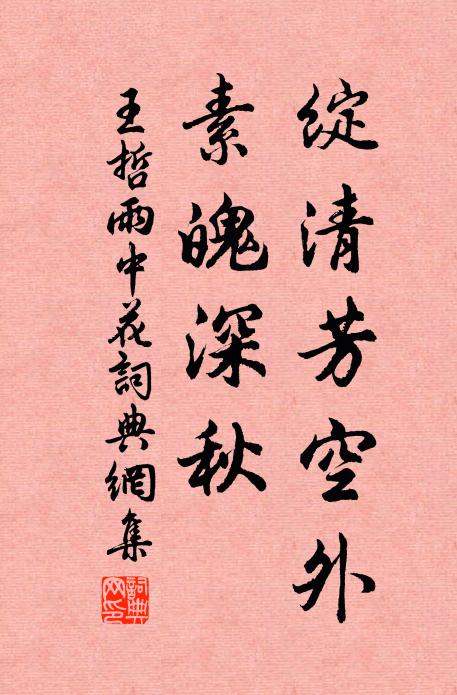 綻清芳空外
素魄深秋
王哲雨中花詞典網集
詞典網印